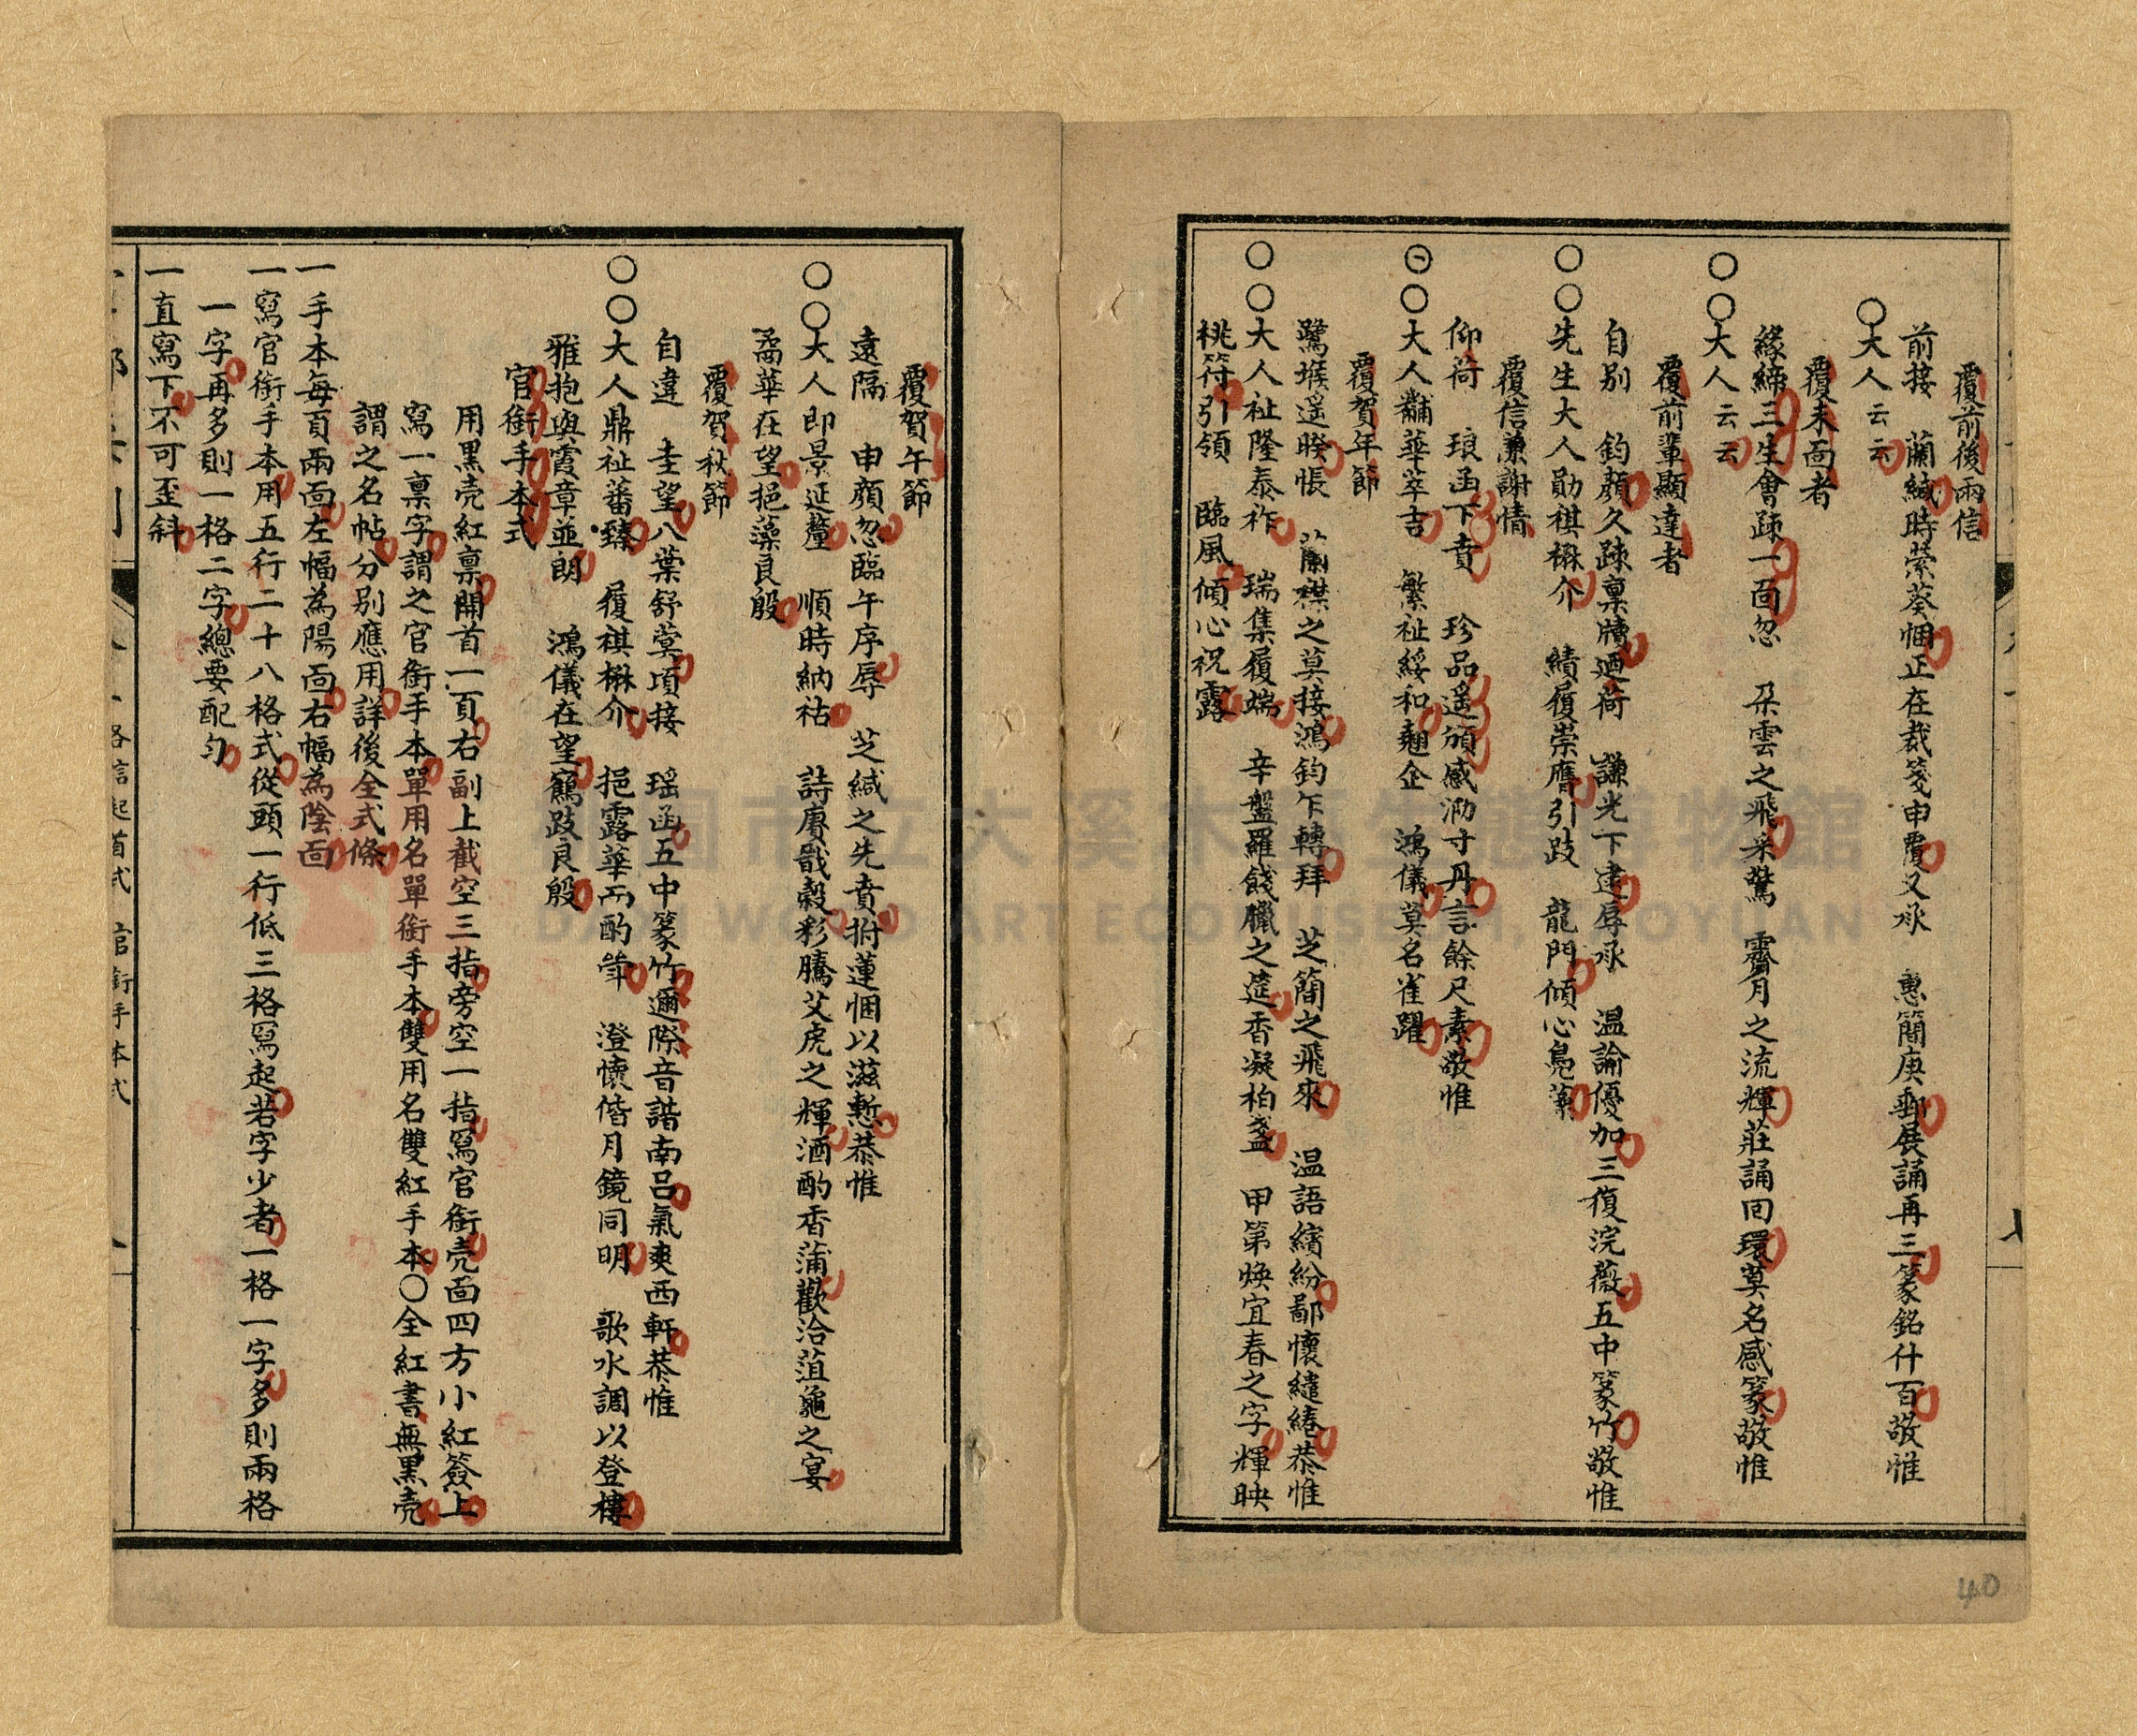 覆前後兩信
前接　蘭緘時縈葵悃正在裁箋申覆又承　惠簡庚郵展誦再三篆銘什百敬惟
〇大人云云
覆未面者
緣締三生會疎一面忽　朵雲之飛采驚　霽月之流輝莊誦回環莫名感篆敬惟
〇〇大人云云
覆前輩顯達者
自別　鈞顏久疎稟牘迺荷　謙光下逮辱承　温諭優加三復浣薇五中篆竹敬惟
〇〇先生大人勛祺楙介　績履崇膺引跂　龍門傾心鳧藻
覆信謙謝情
仰荷　琅函下賁　珍品遥頒感泐寸丹言餘尺素敬惟
〇〇大人黼華萃吉　繁祉綏和翹企　鴻儀莫名雀躍
覆賀年節
鷺堠遥暌悵　蘭襟之莫接鴻鈞乍轉拜　芝簡之飛來　温語繽紛鄙懷繾綣恭惟
〇〇大人祉隆泰祚　瑞集履端　辛盤羅餞臘之筵香凝柏盞　甲第煥宜春之字輝映
桃符引領　臨風傾心祝露
40
覆賀午節
遠隔　申顏忽臨午序辱　芝緘之先賁拊蓮悃以滋慙恭惟
〇〇大人即景延釐　順時納祜　詩賡戩穀彩騰艾虎之輝酒酌香蒲歡洽菹龜之宴
矞華在望挹藻良殷
覆賀秋節
自違　圭望八葉舒蓂項接　瑶函五中篆竹邇際音諧南呂氣爽西軒恭惟
〇〇大人鼎祉蕃臻　履祺楙介　挹露華而酌斝　澄懷偕月鏡同明　歌水調以登樓
雅抱與霞章並朗　鴻儀在望鶴跂良殷
官銜手本式
用黒壳紅稟開首一頁右副上截空三指旁空一指寫官銜壳面四方小紅簽上
寫一稟字謂之官銜手本單用名單銜手本雙用名雙紅手本〇全紅書無黒壳
謂之名帖分別應用詳後全式條
一手本每頁兩面左幅為陽面右幅為陰面
一寫官銜手本用五行二十八格式從頭一行低三格寫起若字少者一格一字多則兩格
一字再多則一格二字總要配勻
一直寫下不可歪斜
各信起首式　官銜手本式
桃園市立大溪木藝生態博物館
DAXI WOOD ART ECOMUSEUM, TAOYUAN